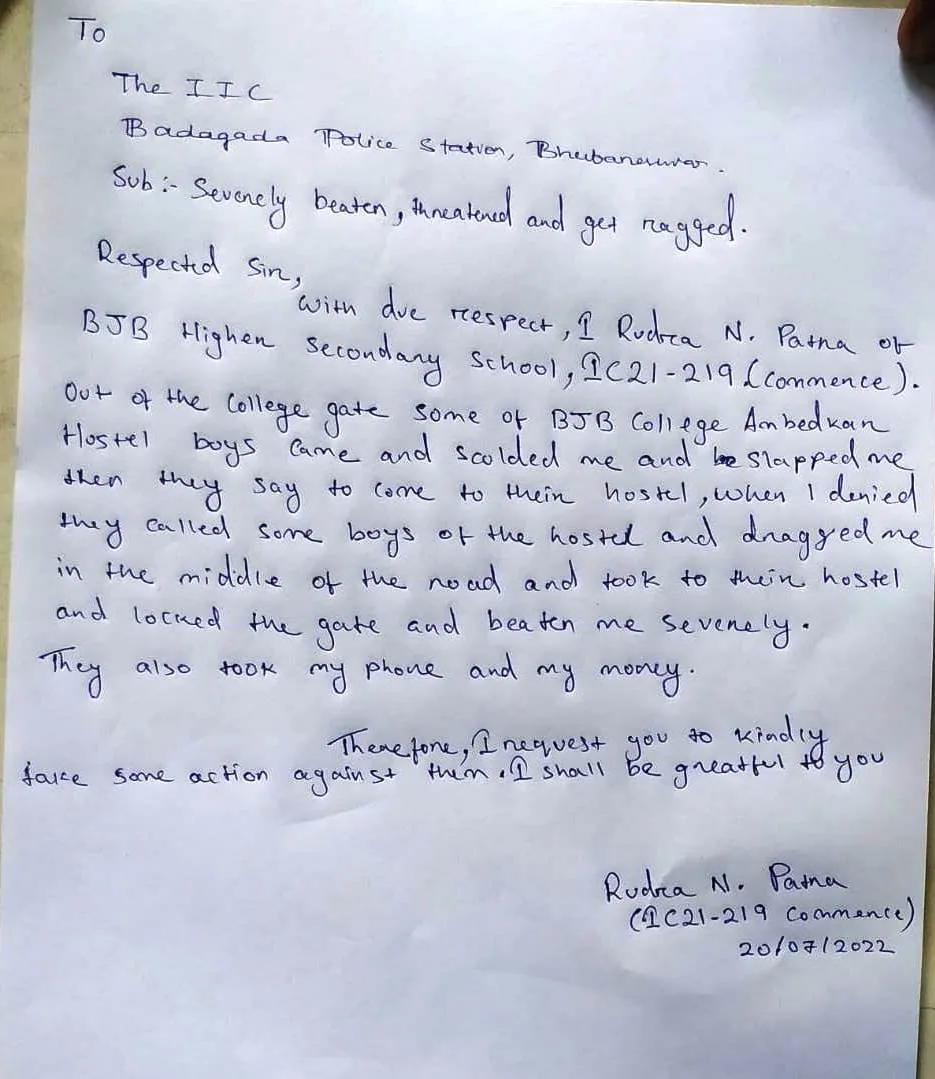 To
The IIC
Badagada Police Station, Bhubaneswar.
Sub :- Severely beaten, threatened and get ragged.
Respected Sir,
with due respect, I Rudra N. Patra of
BJB Higher Secondary School, IC21-219 (commerce).
Out of the College gate some of BJB College Ambedkar
Hostel boys came and scolded me and slapped me
then they say to come to their hostel, when I denied
they called some boys of the hostel and dragged me
in the middle of the road and took to their hostel
and locked the gate and beaten me severely.
They also took my phone and my money.
Therefore, I request you to kindly
take some action against them. I shall be greatful to you
Rudra N. Patra
(IC21-219 Commerce)
20/07/2022